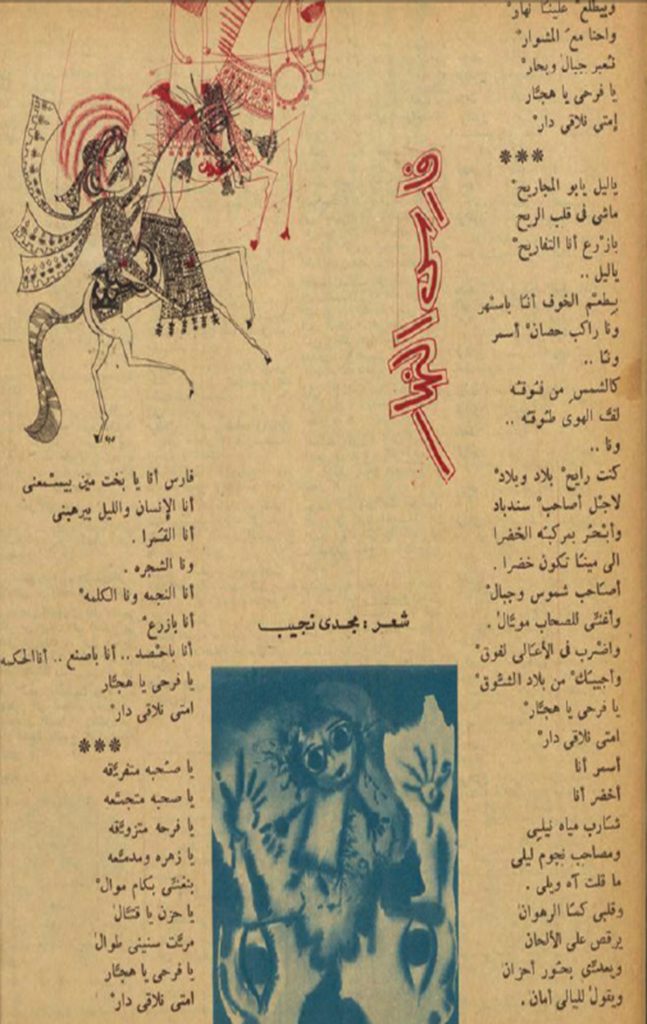 فارس النهار
شعر : مجدى نجيب
ويطلع علينا نهار
واحنا مع المشوار
نعبر جبال وبحار
يا فرحى يا هجار
إمتى نلاقى دار
***
ياليل يابو المجاريح
ماشى فى قلب الريح
بازرع أنا التفاريح
ياليل ..
بطعم الخوف أنا باسهر
ونا راكب حصان أسمر
ونا ..
كالشمس من فوقه
لفت الهوى طوقه ..
ونا ..
كنت رايح بلاد وبلاد
لاجل أصاحب سندباد
وأبحر بمركبه الخضرا
الى مينا تكون خضرا .
أصاحب شموس وجبال
وأغنى للصحاب موال .
واضرب فى الأعالى لفوق
وأجيبك من بلاد الشوق
يا فرحى يا هجار
امتى نلاقى دار
أسمر أنا
أخضر أنا
شارب مياه نيلى
ومصاحب نجوم ليلى
ما قلت آه ويلى .
وقلبى كما الرهوان
يرقص على الألحان
ويعدى بحور أحزان
ويقول لليالى أمان .
فارس أنا يا بخت مين بيسمعنى
أنا الإنسان والليل بيرهبنى
أنا القمرا .
ونا الشجره .
أنا النجمه ونا الكلمه
أنا بازرع
أنا باحصد .. أنا باصنع .. أنا الحكمه
يا فرحى يا هجار
امتى نلاقى دار
***
يا صحبه متفرقه
يا صحبه متجمعه
يا فرحه متزوقه
يا زهره ومدمعه
بنغنى بكام موال
يا حزن يا قتال
مرت سنينى طوال
يا فرحى يا هجار
امتى نلاقى دار